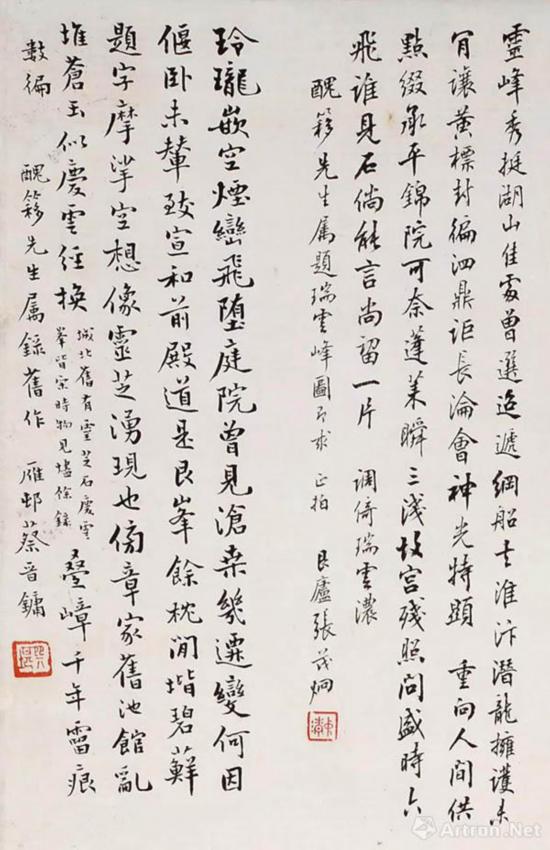 靈峰秀挺湖山佳處曾選迢遞綱船去淮汴潛龍擁護未
肎讓黃標封徧泗鼎詎長淪會神光特顯 重向人間供
點綴承平錦院可奈蓬萊瞬三淺故宮殘照問盛時六
飛誰見石倘能言尚留一片 調倚瑞雲濃
醜簃先生属題瑞雲峰圖即求 正拍 艮廬張茂炯
玲瓏嵌空煙巒飛墮庭院曾見滄桑幾遷變何因
偃臥未輦致宣和前殿道是艮峯餘枕閒堦碧蘚
題字摩挲空想像靈芝湧現也傍章家舊池館亂
堆蒼玉似慶雲經換 城北舊有靈芝石慶雲
峯皆宋時物見燼餘錄 疊嶂千年霤痕
數徧 醜簃先生属錄舊作 雁邨蔡晋鏞
Artron.Net